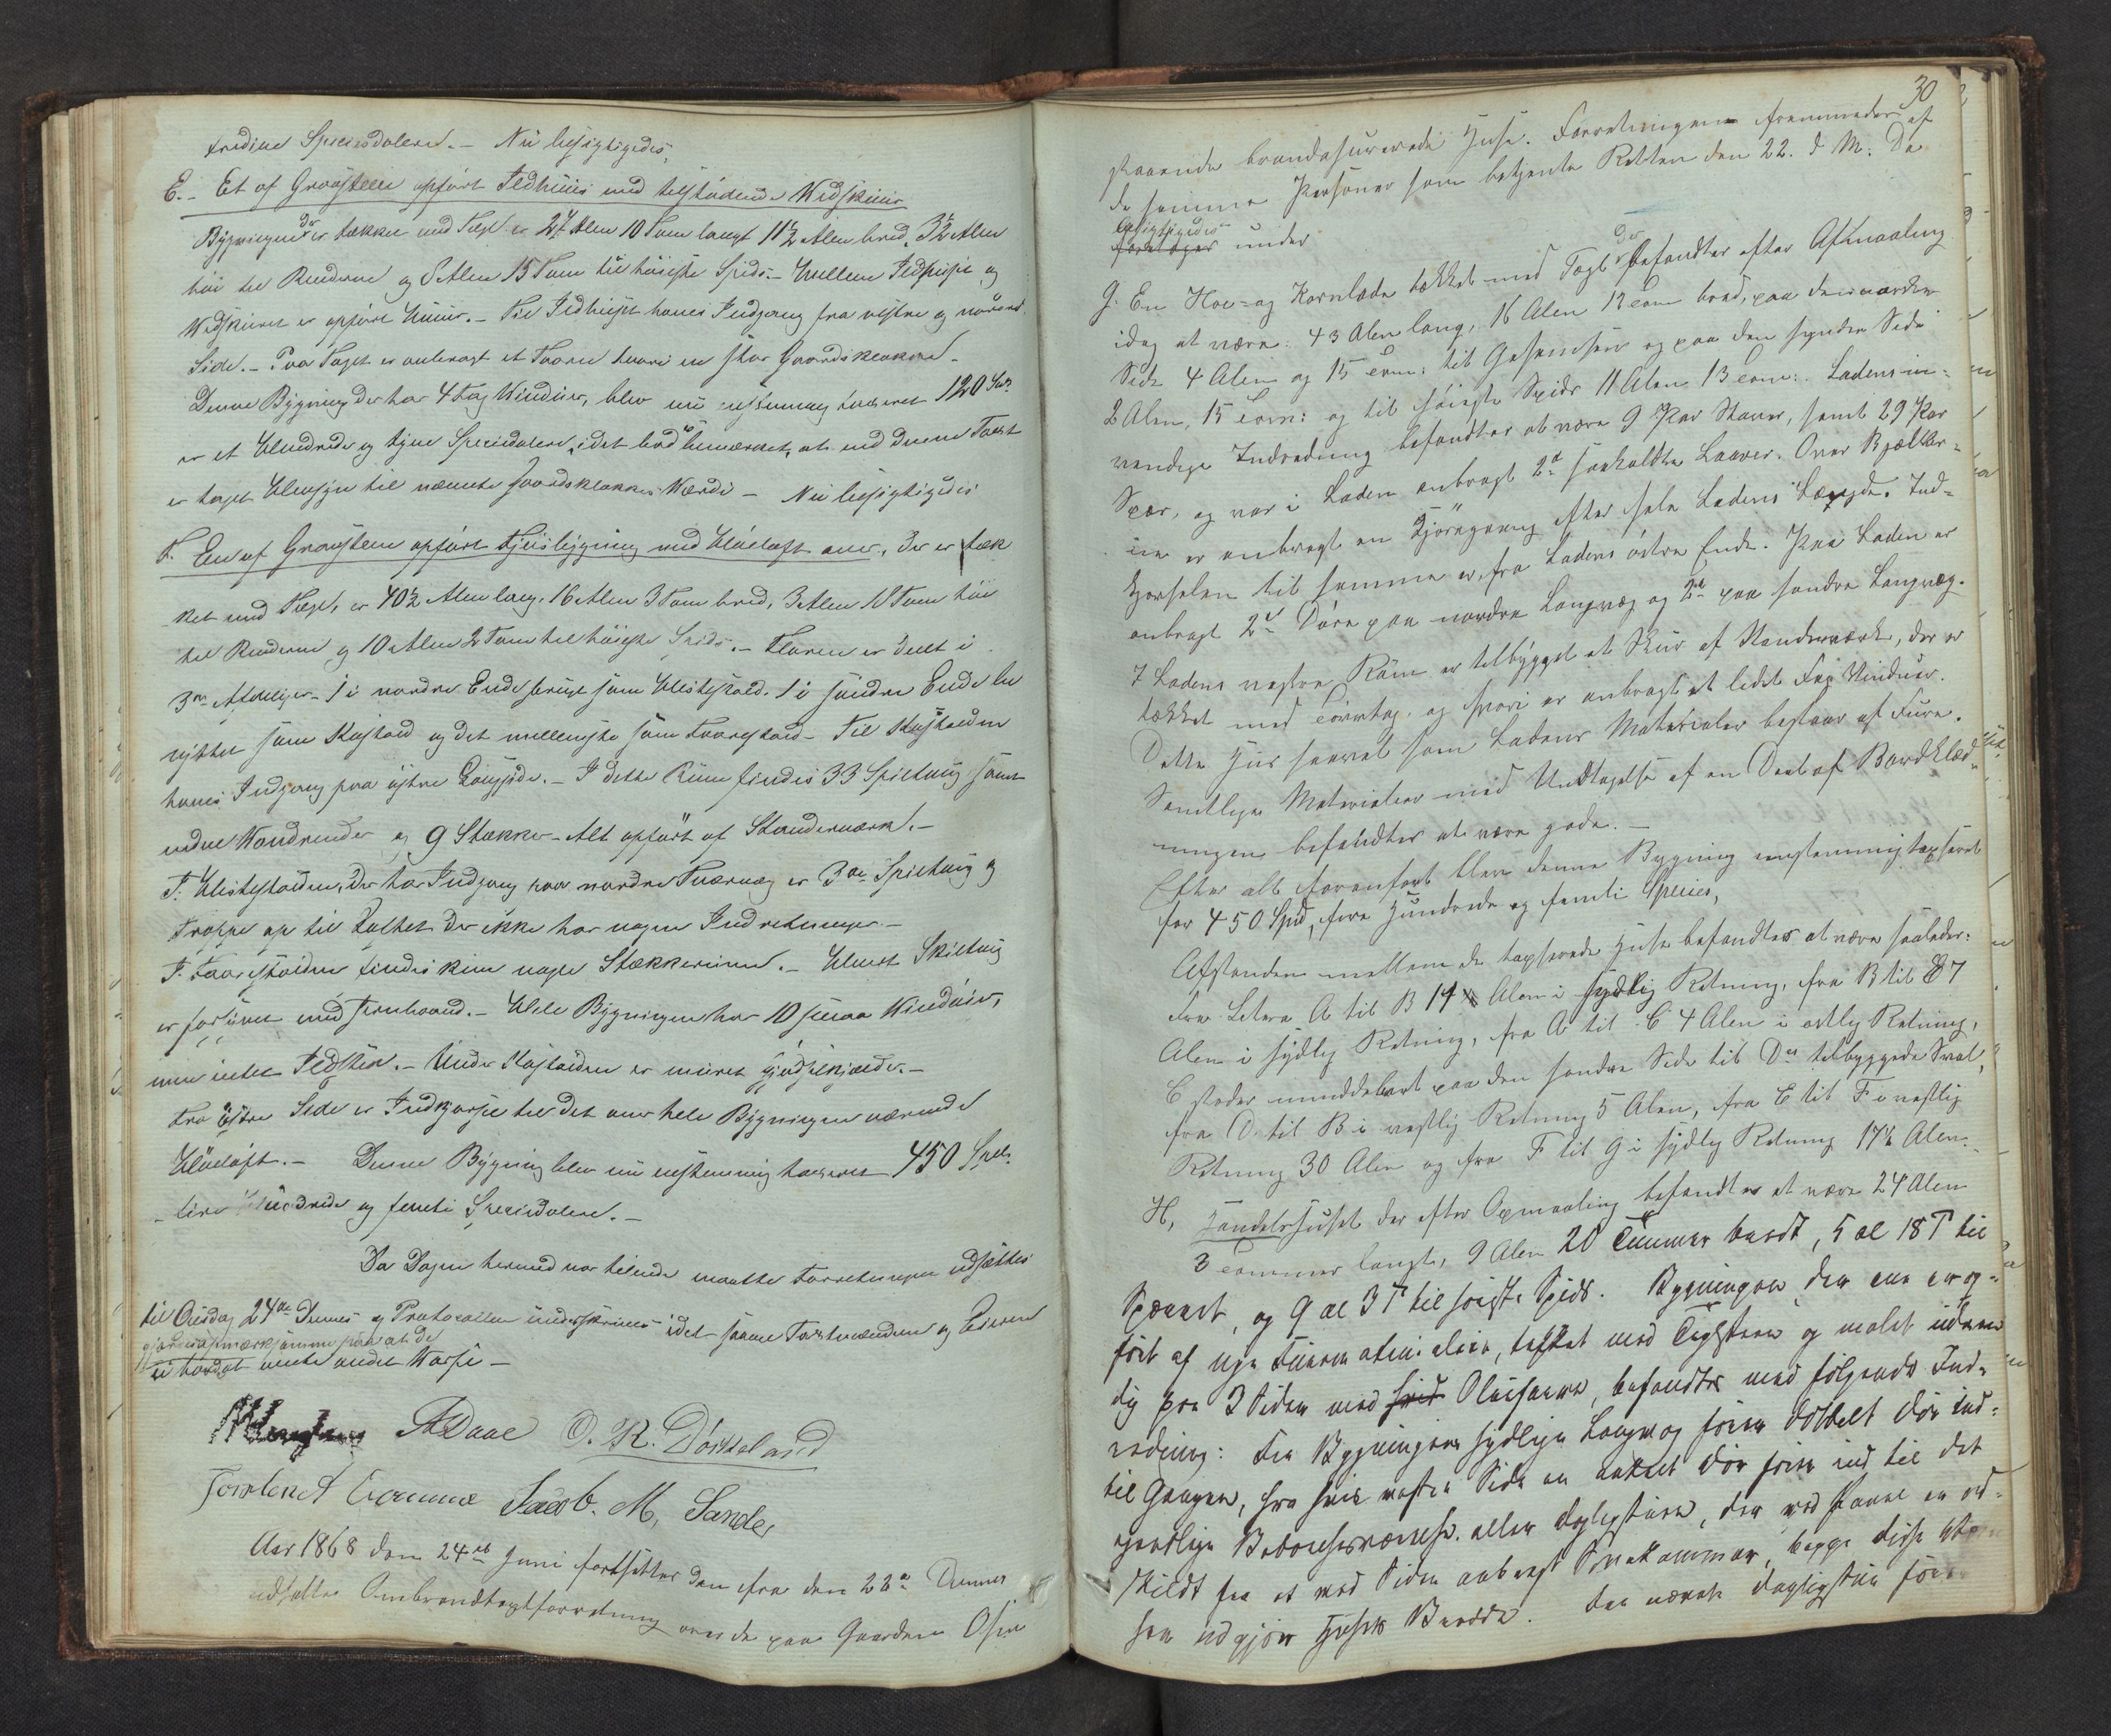 tredive Speciesdalere. – Nu besigtigedes,
E. – Et af Graasteen opført Ildhuus med tilstødende Wedskuur
Bygningen der er tækket med Tegl er 24 Alen 10 Tom langt 11½ Alen bred, 3½ Alen
høi til Renderne og 8 Alen 15 Tom til høieste Spids. – Mellem Ildhuset og
Wedskuret er opført Muur. – Til Ildhuset haves Indgang fra vestre og nordre
Side. – Paa Taget er anbragt et Taarn hvori en stor Gaardsklokke. –
Denne Bygning der har 4 Fag Winduer, blev nu eenstemmig taxeret 120 Spd
er et Hundrede og tyve Speciedalere, idet bød bemærket, at ved denne Taxt
er taget Hensyn til nævnte Gaardsklokkes Værdi – Nu besigtigedes
F. En af Graasteen opført Fjøsbygning med Høeloft over, der er tæk
ket med Tegl, er 40½ Alen lang, 16 Alen 3 Tom bred, 3 Alen 18 Tom høi
til Renderne og 10 Alen 2 Tom til høieste Spids. – Floren er deelt i
3de Afdelinger – 1 i nordre Ende brugt som Hestestald. 1 i søndre Ende be
nyttet som Kostald og det mellemste som Faarestald – Til Kostalden
haves Indgang paa østre Langside. – I dette Rum findes 33 Spiltaug samt
vedne Vandrender og 9 Stækker – Alt opført af Stenderværk. –
I Hestestalden, der har Indgang paa nordre Tværvæg er 3de Spiltaug og
Trappe op til Loftet der ikke har nogen Indretninger –
I Faarestalden findes kun nogle Stækkerum. – Hvert Spiltaug
er forsynet med Jernbaand. – Hele Bygningen har 10 smaa Winduer,
men intet Ildsted. – Under Kostalden er muret Gjødselkjælder. –
Fra Østre Side er Indkjørsel til det over hele Bygningen værende
Høeloft. – Denne Bygning blev nu eenstemmig taxeret 450 Spd.
– fire Hundrede og femti Speciedalere. –
Da Dagen hermed var tilende maatte Forretningen udsættes
til Onsdag 24de Dennes og Protocollen underskrives idet saavel Taxtmændene og Eieren
gjordes opmærksomme paa at de
ei havde at vente andet Varsel –
A Daae O. K. Dørheland
Torsten A Jacob. M. Sande
Aar 1868 den 24de Juni fortsattes den fra den 22de Dennes
udsatte Ombrandtaxtforretning over de paa Gaarden Osen
30
staaende brandasurerede Huse. Forretningen fremmedes af
de samme Personer som betjente Retten den 22. d M. Da
besigtigedes
foretoges under
G. En Hoe= og Kornlade tækket med Tægl der befandtes efter Afmaaling
idag at være: 43 Alen lang, 16 Alen 12 Tom bred, paa den nordre
Side 4 Alen og 15 Tom: til Gesemsen og paa den syndre Side
2 Alen, 15 Tom: og til høieste Spids 11 Alen 13 Tom:. Ladens in=
vendige Indredning befandtes at være 9 Par Staver, samt 29 Par
Spær, og var i Laden anbragt 2de saakaldte Laaver. Over Bjælker=
ne er anbragt en Kjøregang efter hele Ladens Længde. Ind=
kjørselen til samme er fra Ladens østre Ende. Paa Laden er
anbragt 2de Døre paa nordre Langvæg og 2de paa søndre Langvæg.
I Ladens vestre Rum er tilbygget et Skur af Standerværk, der er
tækket med Torvtag, og hvori er anbragt et lidet Fag Vinduer.
Dette Huus saavel som Ladens Materialer bestaar af Furu.
Samtlige Materialier med Undtagelse af en Deel af Bordklæd=
ningen befandtes at være gode. –
Efter alt foranført blev denne Bygning eenstemmig taxseret
for 450 Spd, fire Hundrede og femti Species,
Afstanden mellem de taxserede Huse befandtes at være saaledes:
fra Letera A til B 14 Alen i sydlig Retning, fra B til E 7
Alen i sydlig Retning, fra A til C 4 Alen i østlig Retning,
C støder umiddelbart paa den søndre Side til Ds tilbyggede Sval,
fra D. til B i vestlig Retning 5 Alen, fra E til F i vestlig
Retning 30 Alen og fra F til G i sydlig Retning 17½ Alen.
H, Handelshuset der efter Opmaaling befandtes at være 24 Alen
3 Tommer langt, 9 Alen 20 Tommer bredt, 5 Al 18 T til
Spærret, og 9 al 3 T til høieste Spids. Bygningen, der er op=
ført af nye Furumaterialier, tækket med Teglsteen og malet uden=
dig paa 3 Sider med hvid Oliefarve, befandtes med følgende Ind=
redning: Fra Bygningens sydlige Langvæg fører dobbelt Dør ind=
til Gangen, fra hvis vestre Side en enkelt Dør fører ind til det
egentlige Beboelsesværelse eller Daglegstuen, der ved Panel er ad=
skildt fra et ved Siden anbragt Sovekammer, begge disse
sen udgjør Husets Bredde. Fra nævnte Dagligstue fører